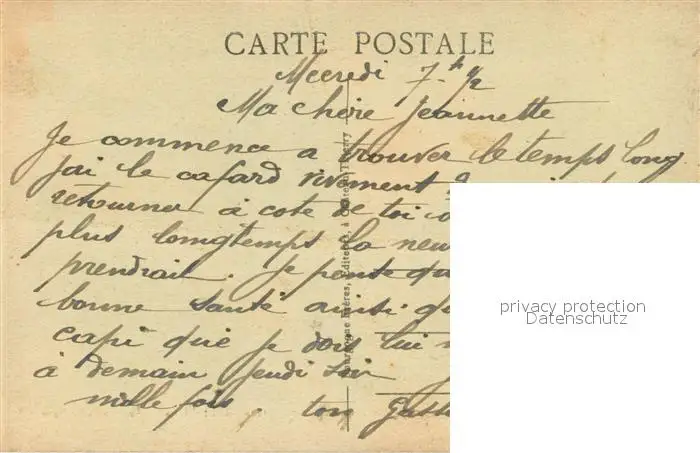 CARTE POSTALE
Mecredi 7 h 1/2
Ma chere Jeannette
Je commence a trouver le temps long
jai le cafard vivement
retourner à cote de toi
plus longtemps la neu
prendrait. Je pense que
bonne santé ainsi que
capi que je dois lui
à demain Jeudi soir
mille fois. ton Gast
privacy protection
Datenschutz